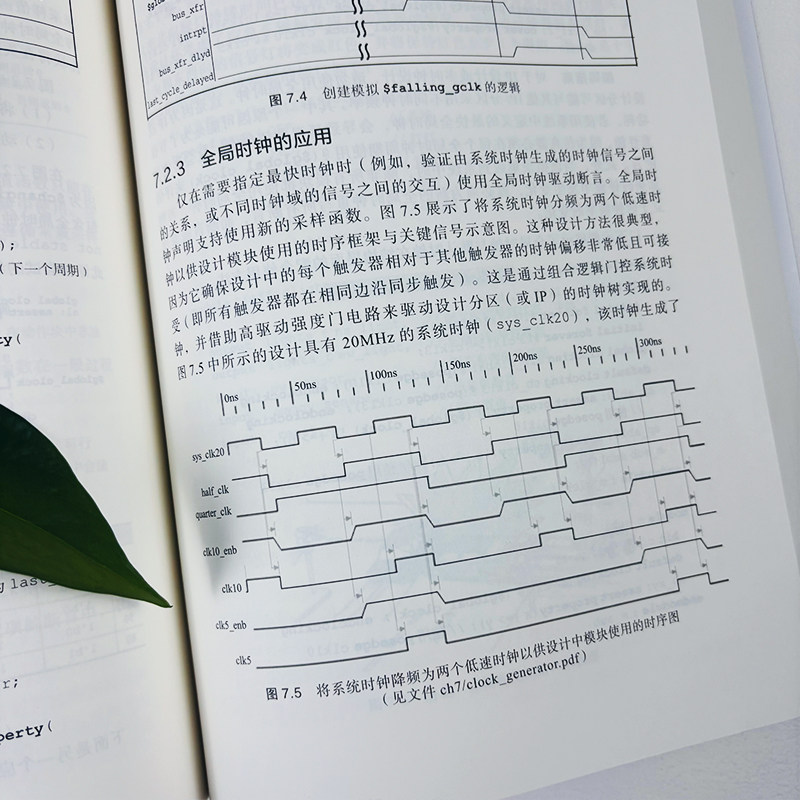 );
(下一个周期)
ty(
g last_
r;
perty(
bus_xfr
intrpt
bus_xfr_dlyd
last_cycle_delayed
图 7.4 创建模拟 $falling_gclk 的逻辑
7.2.3 全局时钟的应用
仅在需要指定最快时钟时(例如,验证由系统时钟生成的时钟信号之间
的关系,或不同时钟域的信号之间的交互)使用全局时钟驱动断言。全局时
钟声明支持使用新的采样函数。图 7.5 展示了将系统时钟分频为两个低速时
钟以供设计模块使用的时序框架与关键信号示意图。这种设计方法很典型,
因为它确保设计中的每个触发器相对于其他触发器的时钟偏移非常低且可接
受(即所有触发器都在相同边沿同步触发)。这是通过组合逻辑门控系统时
钟,并借助高驱动强度门电路来驱动设计分区(或 IP)的时钟树实现的。
图 7.5 中所示的设计具有 20MHz 的系统时钟(sys_clk20),该时钟生成了
0ns 50ns 100ns 150ns 200ns 250ns 300ns
sys_clk20
half_clk
quarter_clk
clk10_enb
clk10
clk5_enb
clk5
图 7.5 将系统时钟降频为两个低速时钟以供设计中模块使用的时序图
(见文件 ch7/clock_generator.pdf)